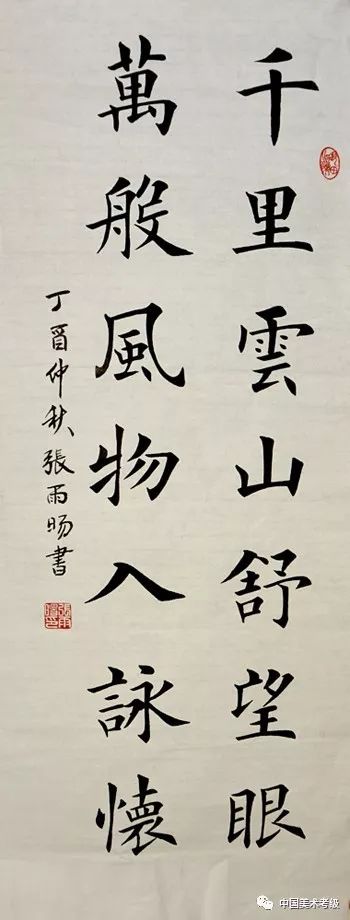 千里雲山舒望眼
萬般風物入詠懷
丁酉仲秋張雨暘書
中国美术考级